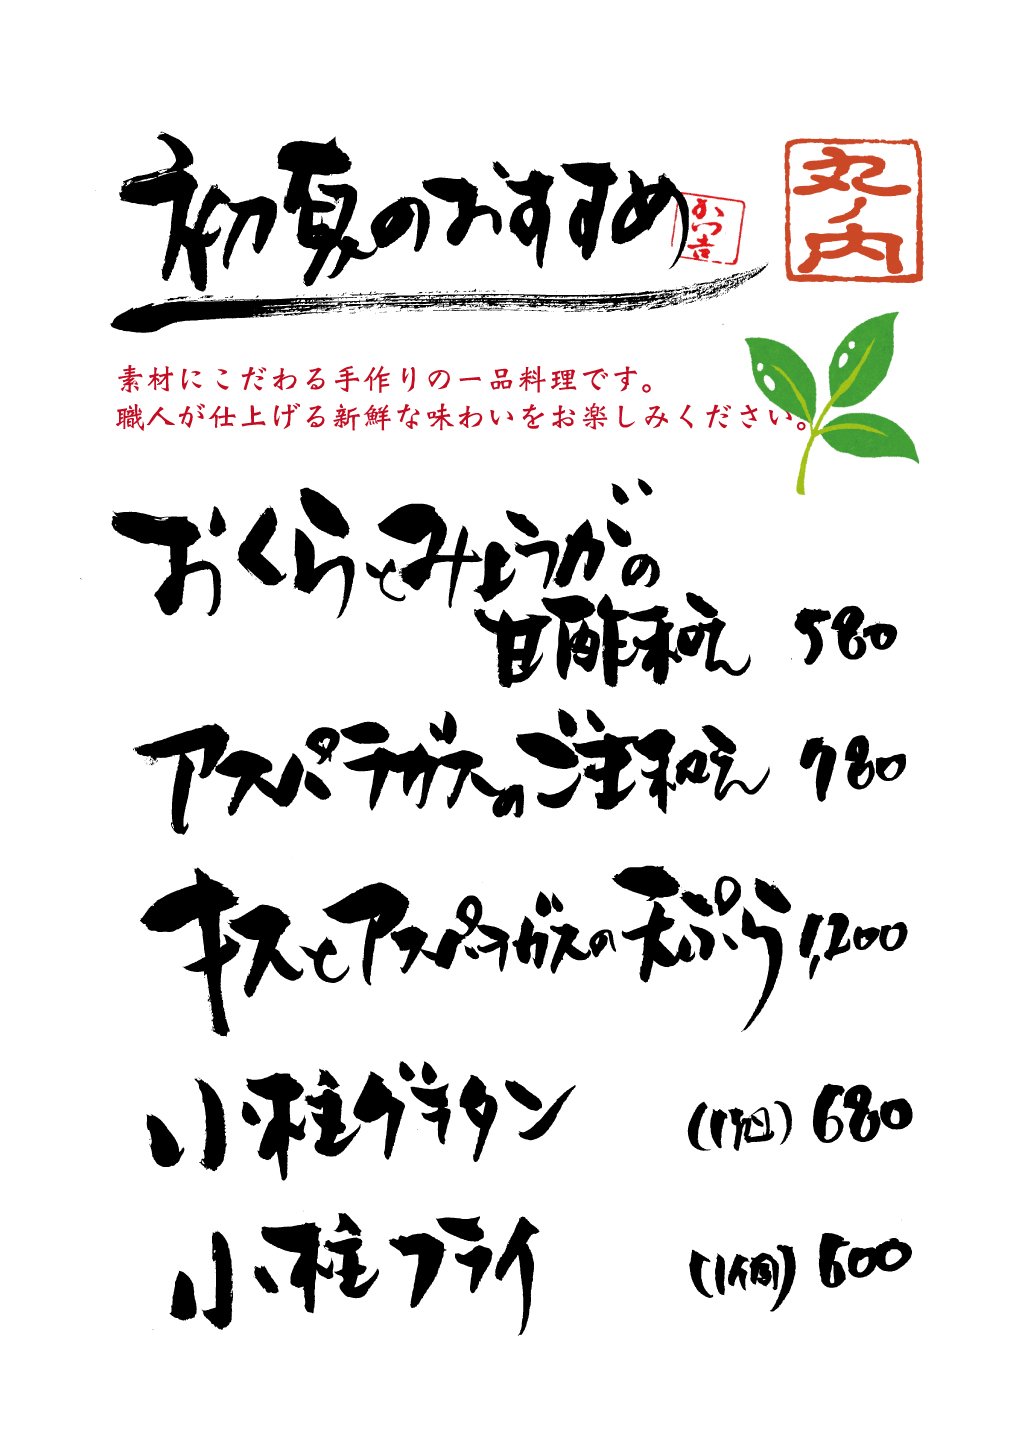 初夏のおすすめ
かつ吉
丸ノ内
素材にこだわる手作りの一品料理です。
職人が仕上げる新鮮な味わいをお楽しみください。
おくらとみょうがの
甘酢和え 580
アスパラガスのご主和え 780
キスとアスパラガスの天ぷら 1,200
小柱グラタン (1個) 680
小柱フライ (1個) 600